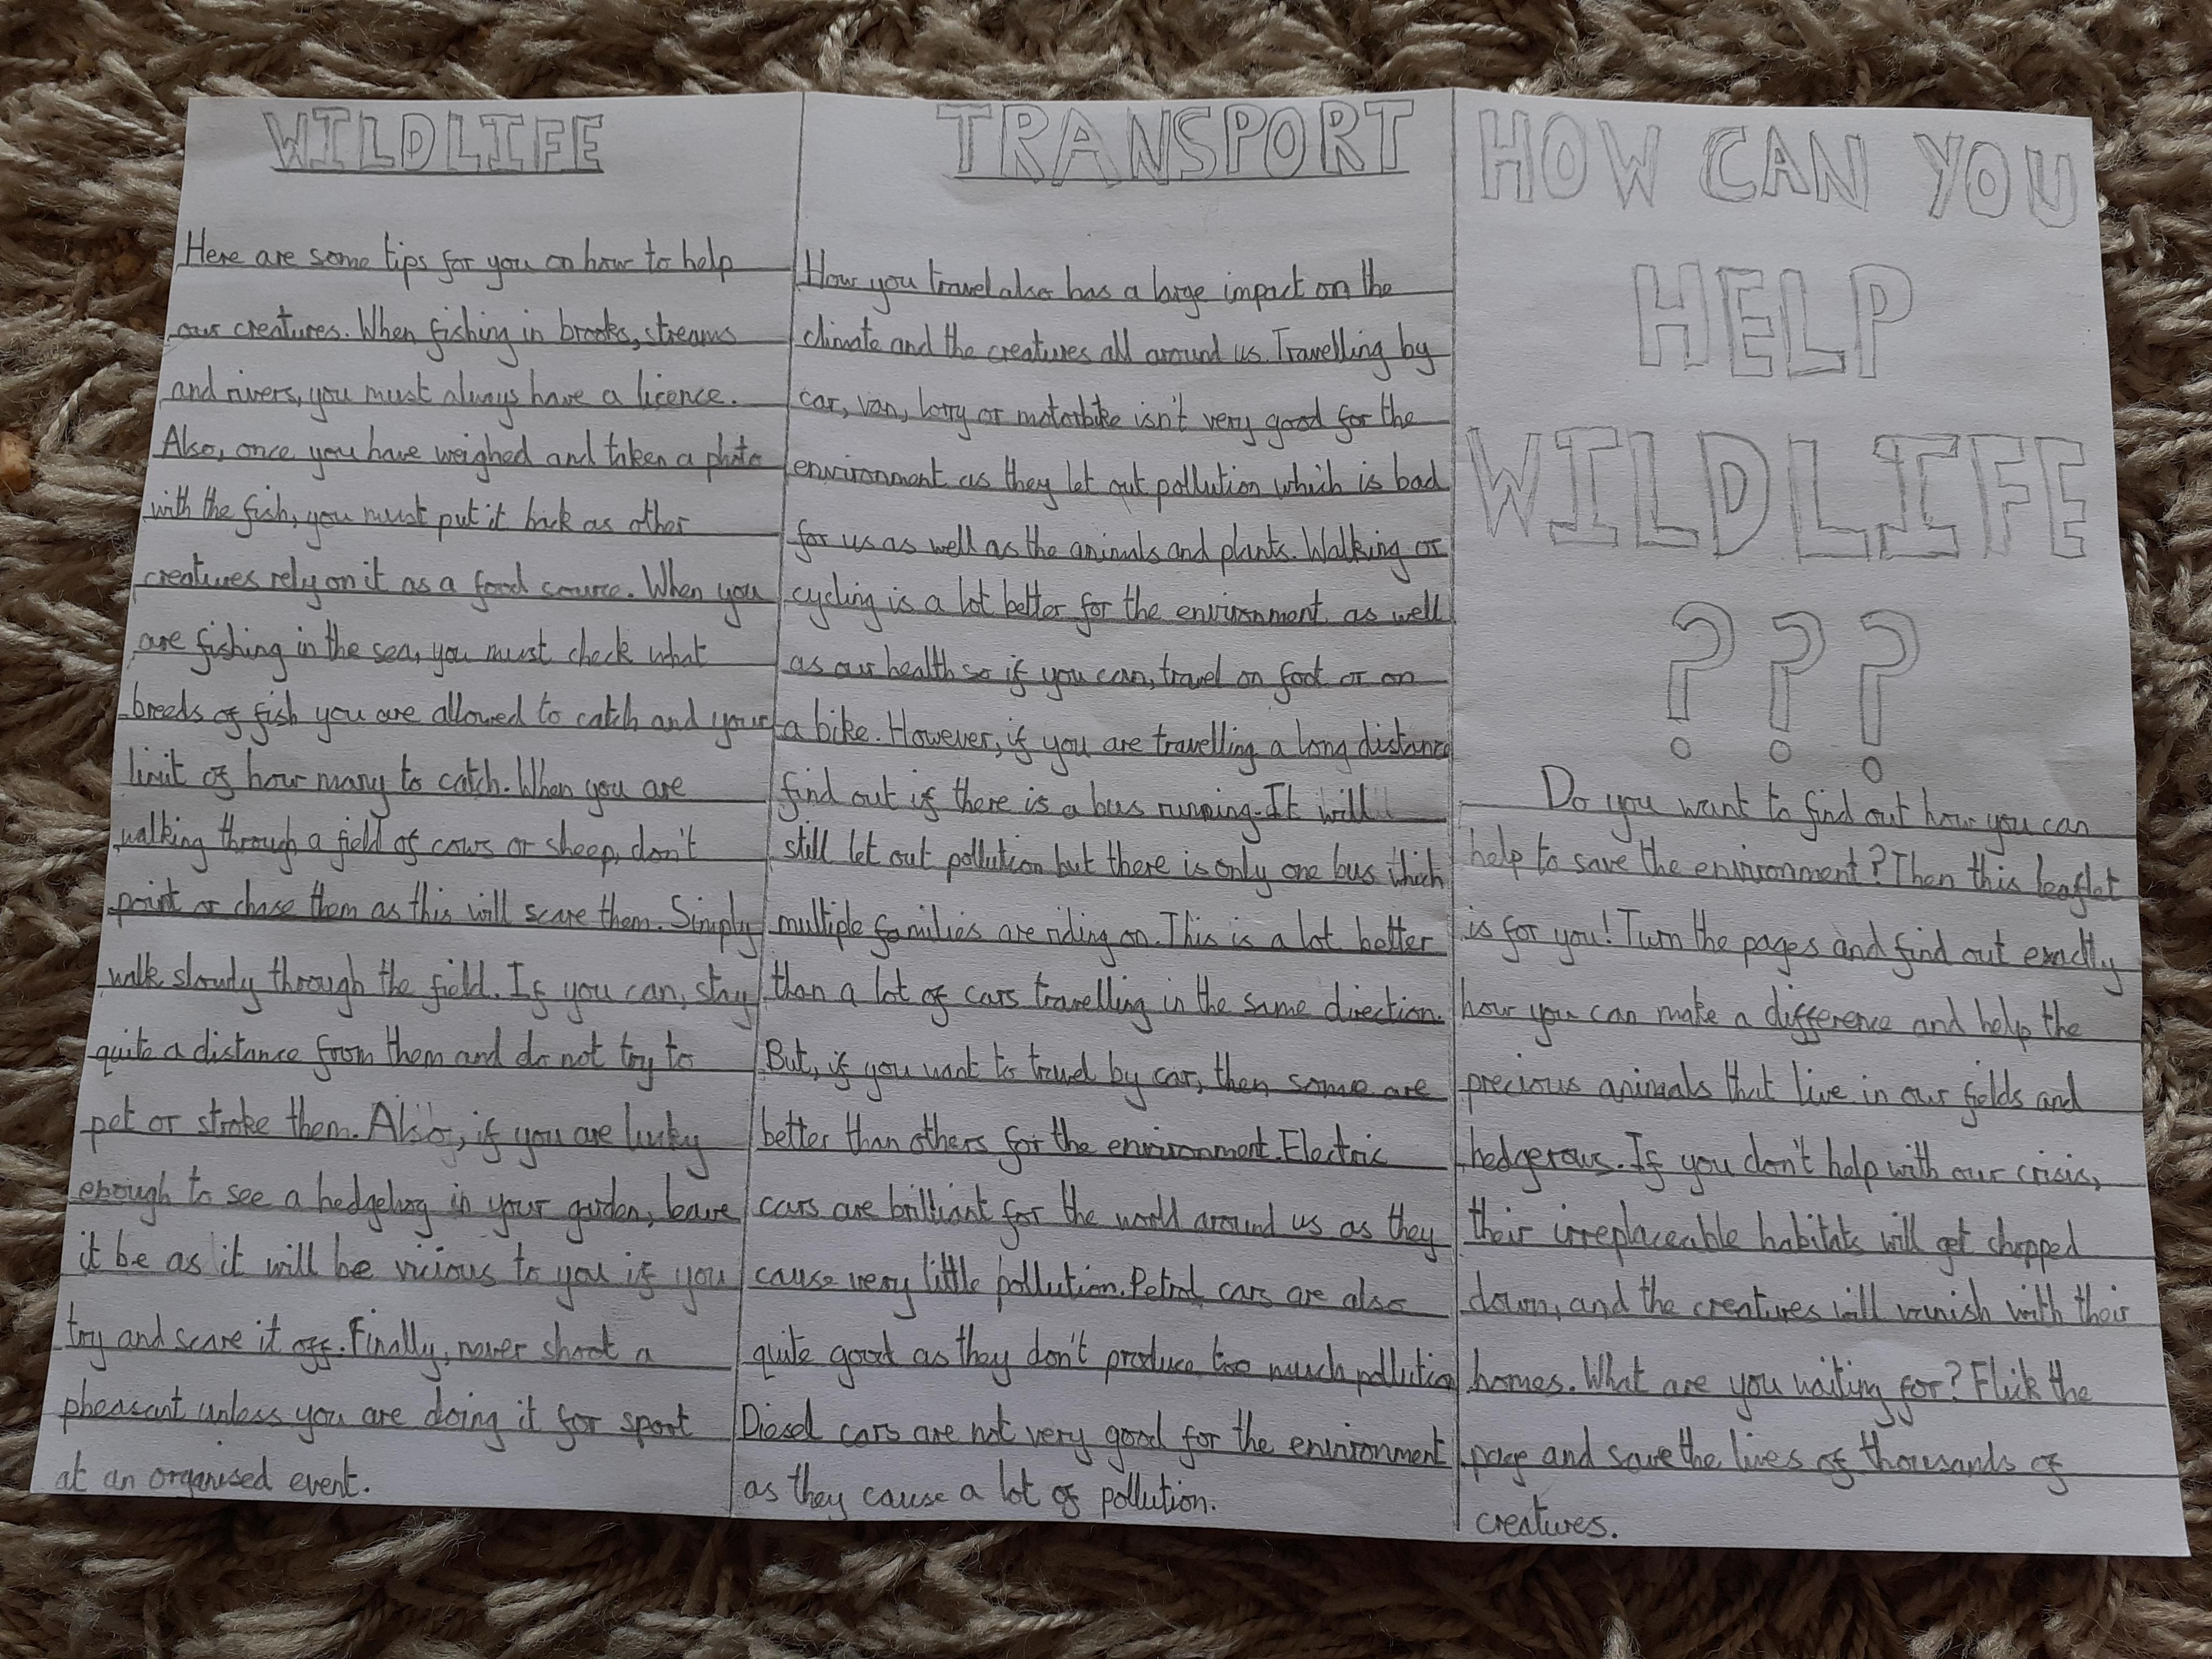 WILDLIFE
Here are some tips for you on how to help
our creatures. When fishing in brooks, streams
and rivers, you must always have a licence.
Also, once you have weighed and taken a photo
with the fish, you must put it back as other
creatures rely on it as a food source. When you
are fishing in the sea, you must check what
breeds of fish you are allowed to catch and your
limit of how many to catch. When you are
walking through a field of cows or sheep, don't
point or chase them as this will scare them. Simply
walk slowly through the field. If you can, stay
quite a distance from them and do not try to
pet or stroke them. Also, if you are lucky
enough to see a hedgehog in your garden, leave
it be as it will be vicious to you if you
try and scare it off. Finally, never shoot a
pheasant unless you are doing it for sport
at an organised event.
TRANSPORT
How you travel also has a large impact on the
climate and the creatures all around us. Travelling by
car, van, lorry or motorbike isn't very good for the
environment as they let out pollution which is bad
for us as well as the animals and plants. Walking or
cycling is a lot better for the environment as well
as our health so if you can, travel on foot or on
a bike. However, if you are travelling a long distance
find out if there is a bus running. It will
still let out pollution but there is only one bus which
multiple families are riding on. This is a lot better
than a lot of cars travelling in the same direction.
But, if you want to travel by car, then some are
better than others for the environment. Electric
cars are brilliant for the world around us as they
cause very little pollution. Petrol cars are also
quite good as they don't produce too much pollution
Diesel cars are not very good for the environment
as they cause a lot of pollution.
HOW CAN YOU
HELP
WILDLIFE
???
Do you want to find out how you can
help to save the environment? Then this leaflet
is for you! Turn the pages and find out exactly
how you can make a difference and help the
precious animals that live in our fields and
hedgerows. If you don't help with our crisis,
their irreplaceable habitats will get chopped
down, and the creatures will vanish with their
homes. What are you waiting for? Flick the
page and save the lives of thousands of
creatures.